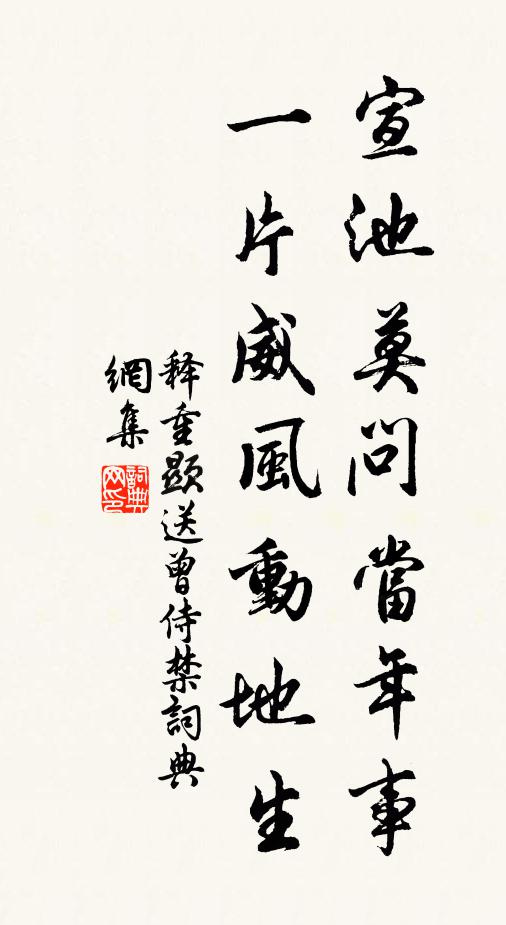 宣池莫问當年事
一片威風動地生
释重顯送曾侍禁詞典
網集
詞典網印